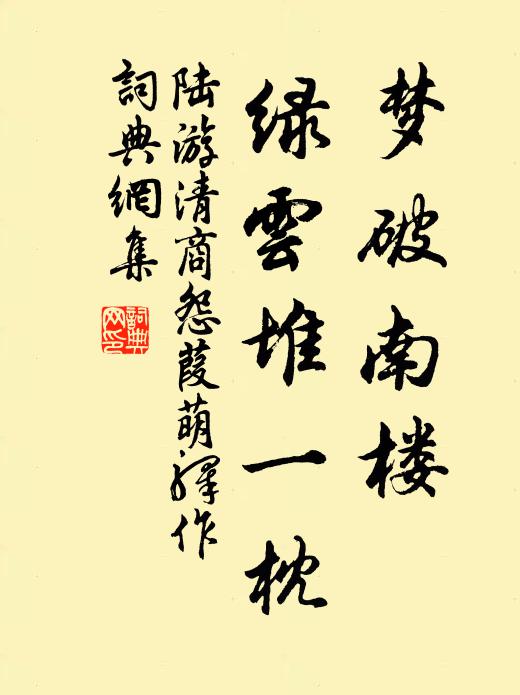 梦破南楼
绿雲堆一枕
陆游清商怨葭萌驿作
詞典網集
詞典网印